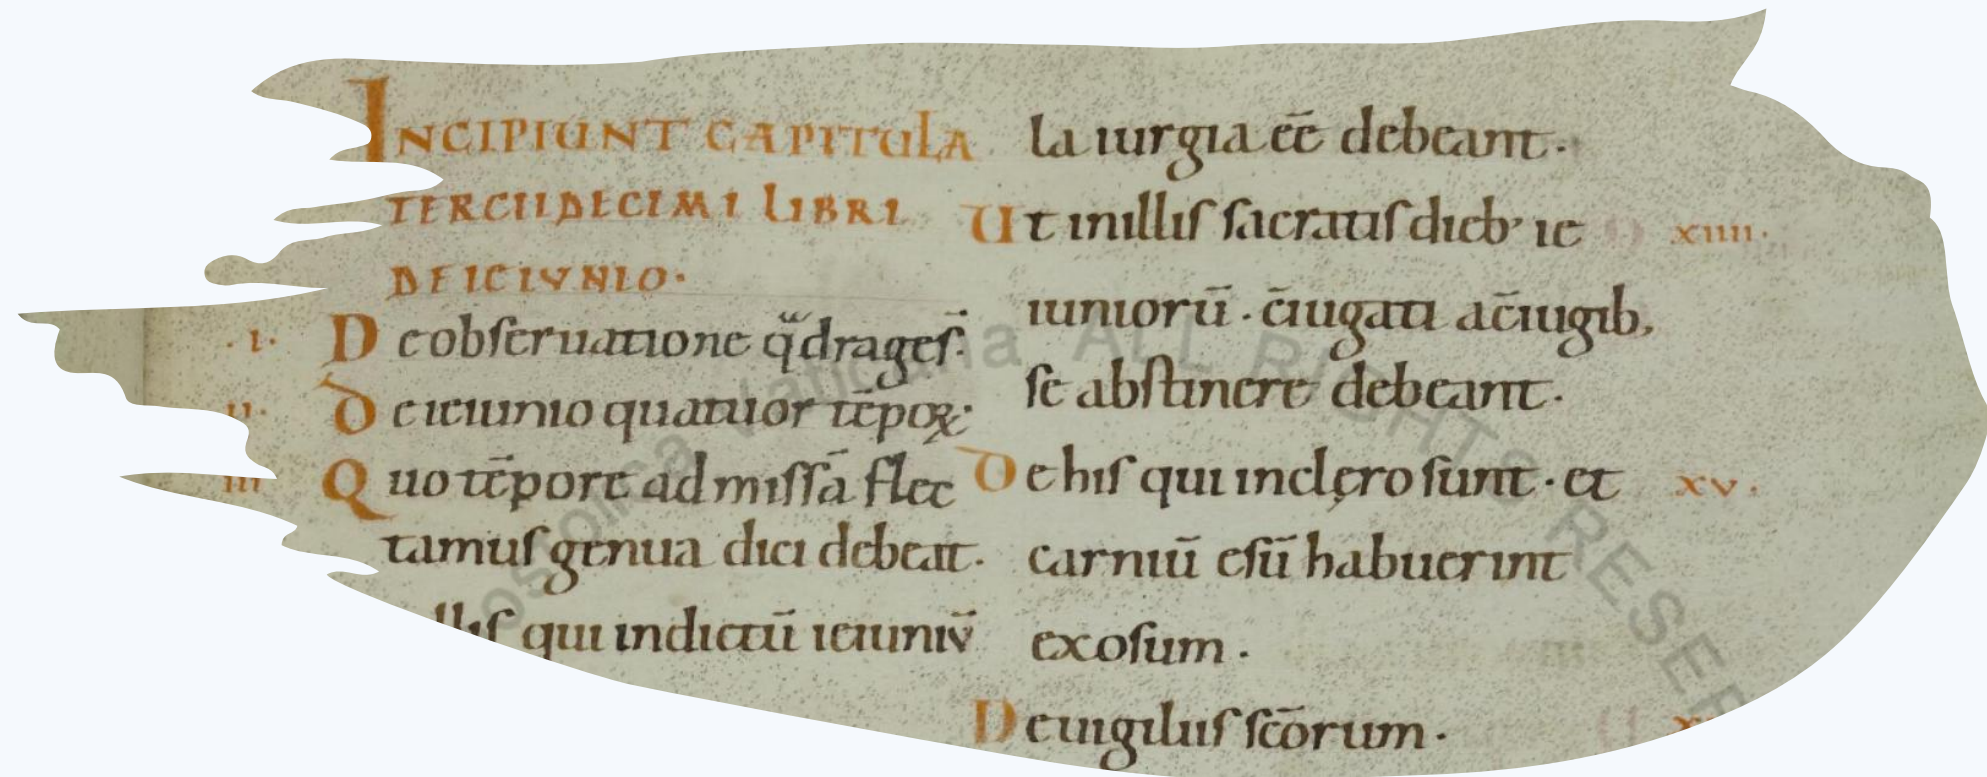 INCIPIUNT CAPITULA
TERCIIDECIMI LIBRI
DE IEIUNIO·
·I· De obseruatione q̈dragес̄·
II· De ieiunio quatuor tēpoꝝ·
III Quo tēpore ad missā flec
tamus genua dici debeat·
illis qui indictū ieiuniū
la iurgia eē debeant·
Ut in illis sacratis dieb; ie XIIII·
iuniorū· c̄iugati a c̄iugib;
se abstinere debeant·
De his qui in clero sunt· et XV·
carniū esū habuerint
exosum·
De uigiliis sc̄orum·